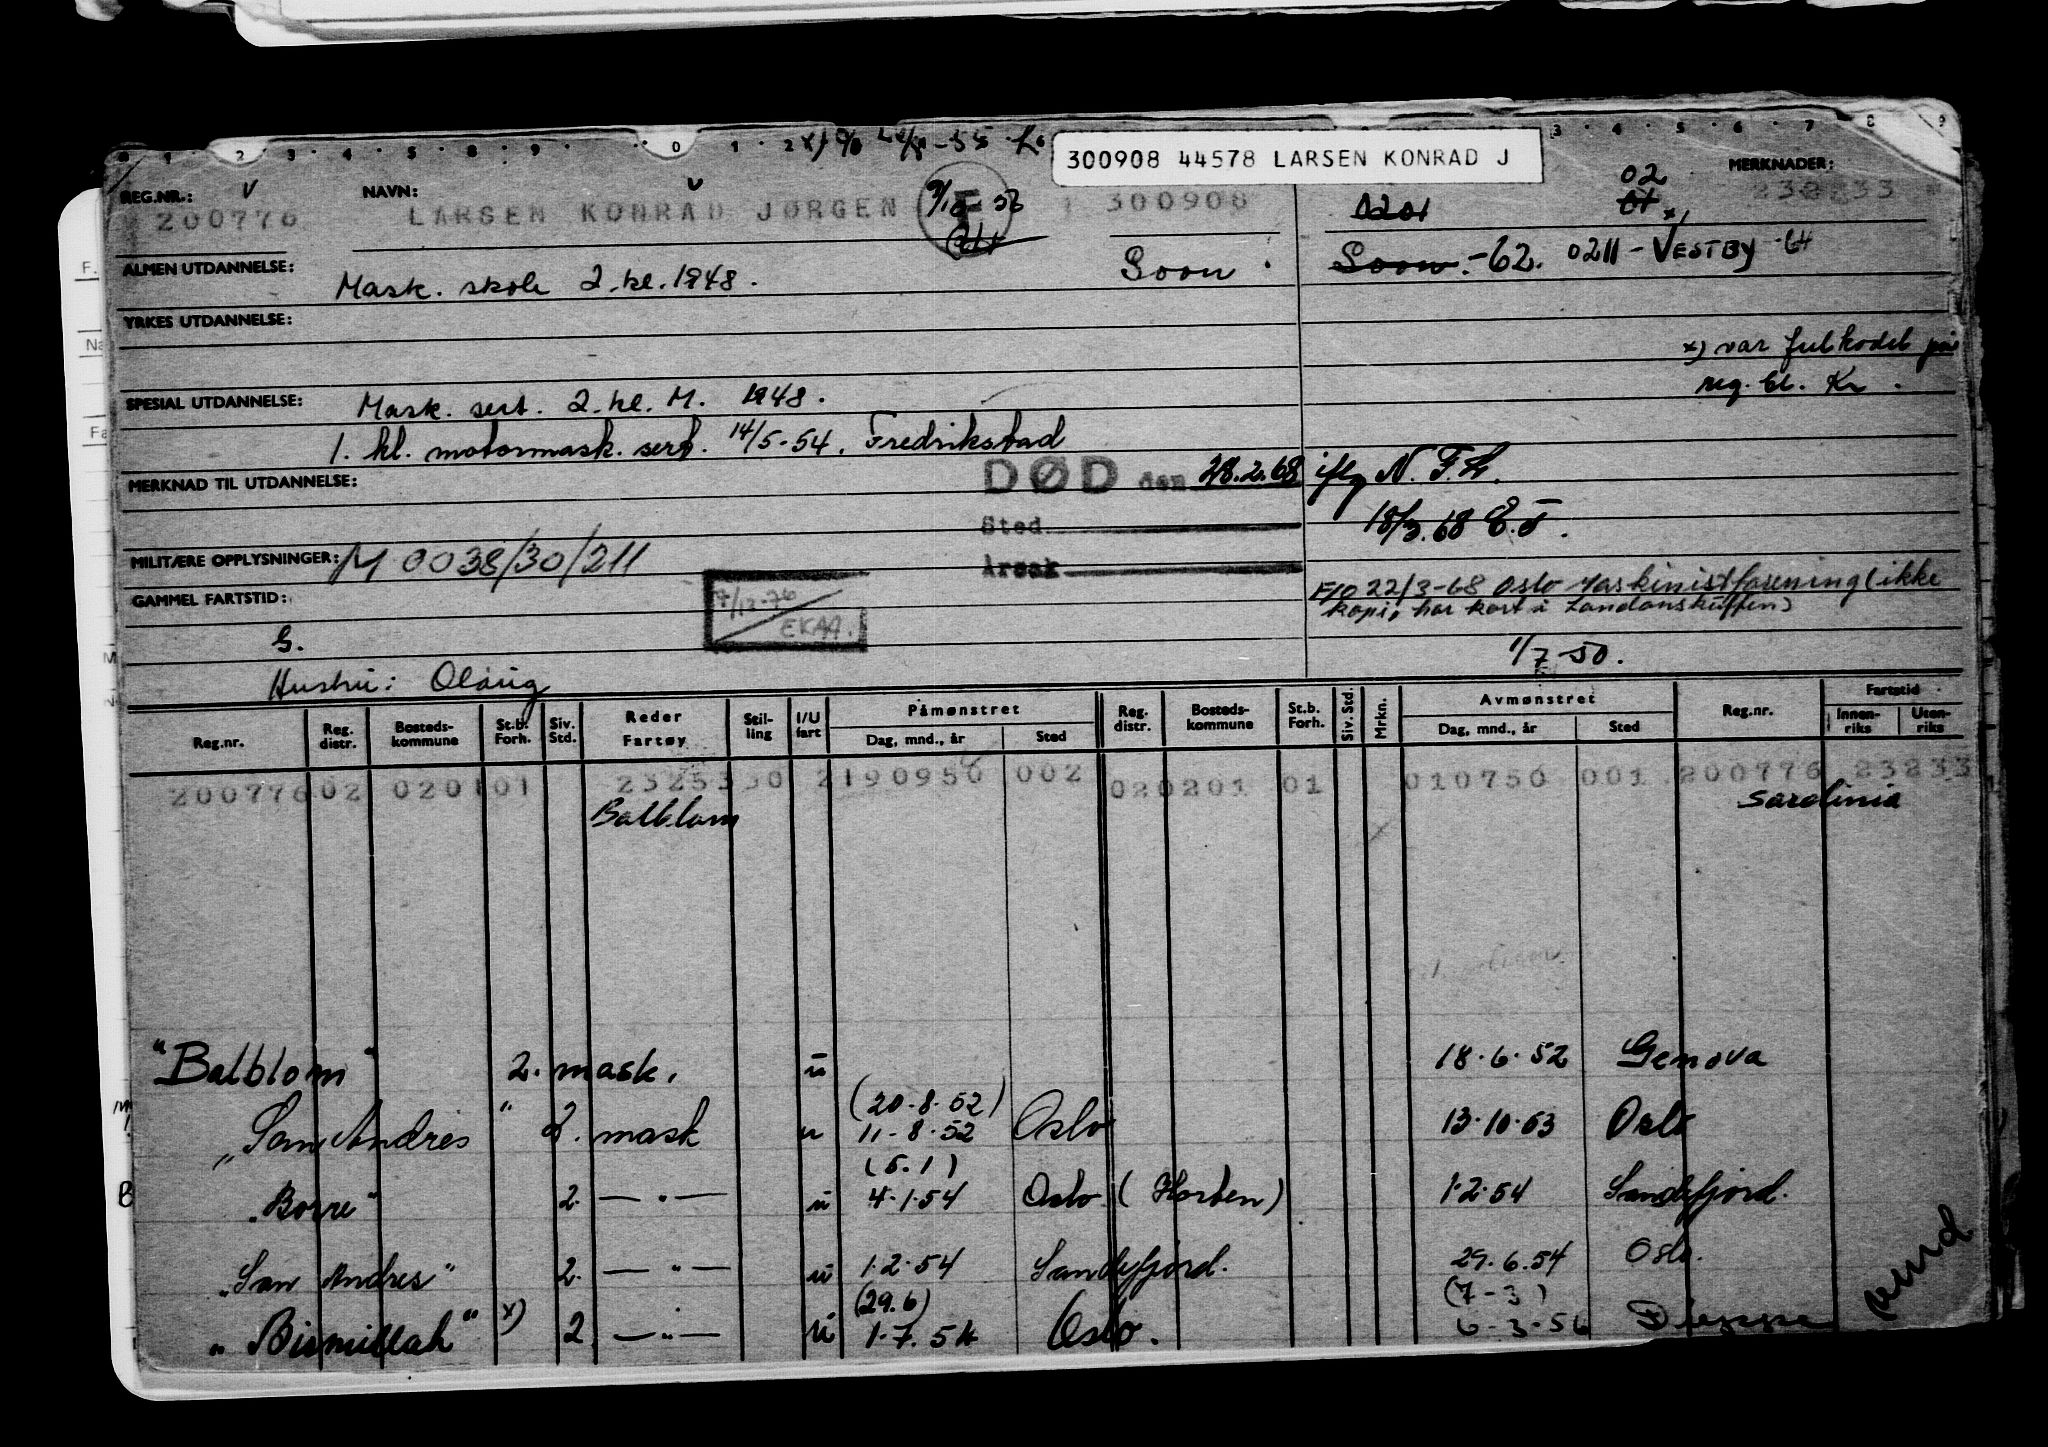 300908 44578 LARSEN KONRAD J
REG.NR.: 200776
NAVN: LARSEN KONRAD JØRGEN 300908
0201 02 01 x)
MERKNADER: 23233
ALMEN UTDANNELSE: Mask. skole 2. kl. 1948. Soon
Soon. -62. 0211 - VESTBY -64
YRKES UTDANNELSE:
x) var feilkodet på
reg. bl. Kr.
SPESIAL UTDANNELSE: Mask. sert. 2. kl. M. 1948.
1. kl. motormask. sert. 14/5-54. Fredrikstad
MERKNAD TIL UTDANNELSE:
DØD den 28.2.68 iflg N. F. K.
Sted
18/3.68 E.F.
Årsak
MILITÆRE OPPLYSNINGER: M 0038/30/211
7/12-76
EKAA.
F/O 22/3-68 Oslo Maskinistforening (ikke
kopi, har kort i Landanskuffen)
GAMMEL FARTSTID:
G.
1/7 50.
Hustru: Olaug
Reg.nr. Reg. distr. Bosteds-kommune St.b. Forh. Siv. Std. Reder Fartøy Stil-ling I/U fart Påmønstret Dag, mnd., år Sted Reg. distr. Bosteds-kommune St.b. Forh. Siv. Std. Mrkn. Avmønstret Dag, mnd., år Sted Reg.nr. Fartstid Innen-riks Uten-riks
200776 02 0201 01 23253 30 2 190950 002 02 0201 01 010750 001 200776 23233
Balblom Sardinia
"Balblom" 2. mask. u 18.6.52 Genova
(20.8.52)
"San Andres" 2. mask u 11-8-52 Oslo 13.10.53 Oslo
(5.1)
"Borre" 2. — " — u 4.1.54 Oslo (Horten) 1.2.54 Sandefjord.
"San Andres" 2. — " — u 1.2.54 Sandefjord. 29.6.54 Oslo.
(29.6) (7-3)
"Bismillah" x) 2. — " — u 1.7.54 Oslo. 6-3-56 Dieppe